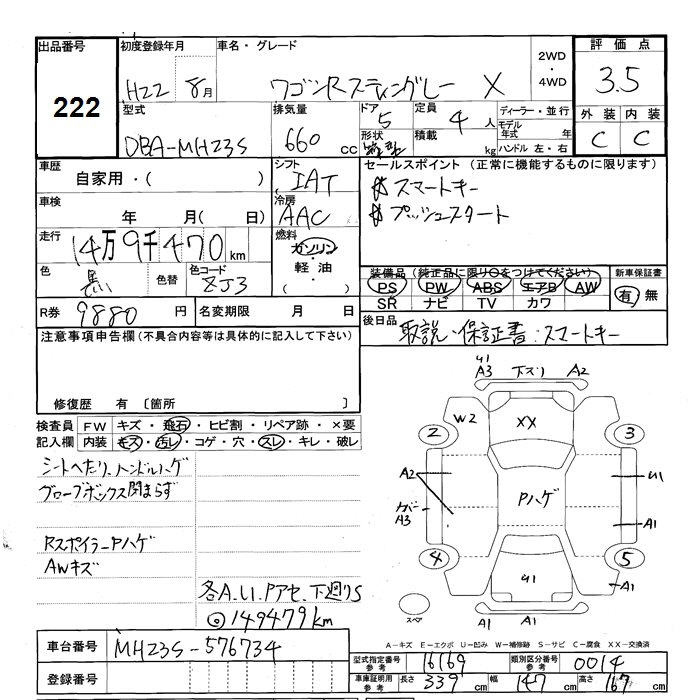 出品番号 222
初度登録年月 H22 8月
車名・グレード ワゴンRスティングレー X
2WD ・ 4WD
評価点 3.5
外装 内装
C C
型式 DBA-MH23S
排気量 660 cc
ドア 5
形状
定員 4人
積載 kg
ディーラー・並行
モデル年式 年
ハンドル 左・右
車歴 自家用・( )
シフト IAT
セールスポイント (正常に機能するものに限ります)
スマートキー
プッシュスタート
車検 年 月(日)
冷房 AAC
走行 14万9千470km
燃料 ガソリン・軽油・( )
色 黒 色替 色コード ZJ3
装備品 (純正品に限り○をつけてください)
PS PW ABS エアB AW
SR ナビ TV カワ
新車保証書 有・無
R券 9880円
名変期限 月 日
後日品 取説・保証書・スマートキー
注意事項申告欄(不具合内容等は具体的に記入して下さい)
修復歴 有 〔箇所 〕
検査員記入欄 FW キズ・飛石・ヒビ割・リペア跡・×要
内装 モス・汚レ・コゲ・穴・スレ・キレ・破レ
シートヘたり、ハンドルハゲ
グローブボックス閉まらず
RスポイラーPハゲ
AWキズ
各A.U.Pアセ.下廻りS
◎149479km
U1
A3 下ズリ A2
W2 XX
2 3
A2 U1
Pハゲ
A3 A1
4 5
U1 A1
スペア
A1 A1
A-キズ E-エクボ U-凹み W-補修跡 S-サビ C-腐食 XX-交換済
車台番号 MH23S-576734
登録番号
型式指定番号 参考 16169
類別区分番号 参考 0014
車庫証明用 参考 長さ 339cm 幅 147cm 高さ 167cm